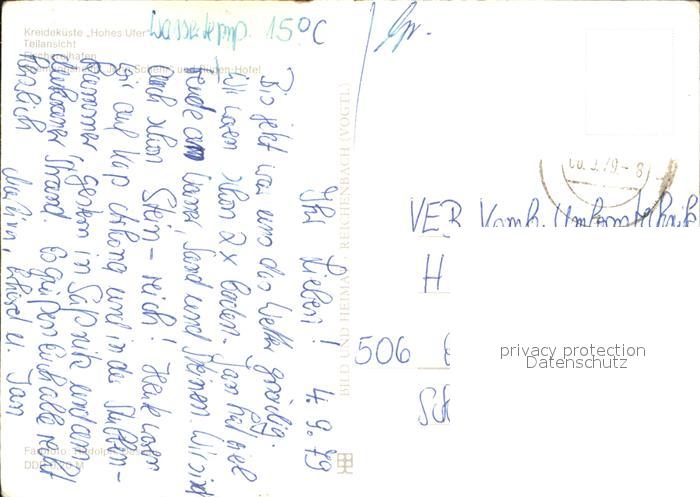 Kreideküste „Hohes Ufer"
Teilansicht
Fischereihafen
und Rügen-Hotel
Wassertemp. 15°C
Ihr Lieben! 4.9.79
Bis jetzt war uns das Wetter gnädig.
Wir waren schon 2x baden. Jan hat viel
Freude am Wasser, Sand und Steinen. Wir sind
auch schon Stein-reich! Heute waren
wir auf Kap Arkona und in der Stubben-
kammer, gestern in Saßnitz und am
Strand. Es grüßen Euch alle recht
herzlich
u. Jan
BILD UND HEIMAT · REICHENBACH (VOGTL)
VEB Komb. Umformtechnik
H
506
privacy protection
Datenschutz